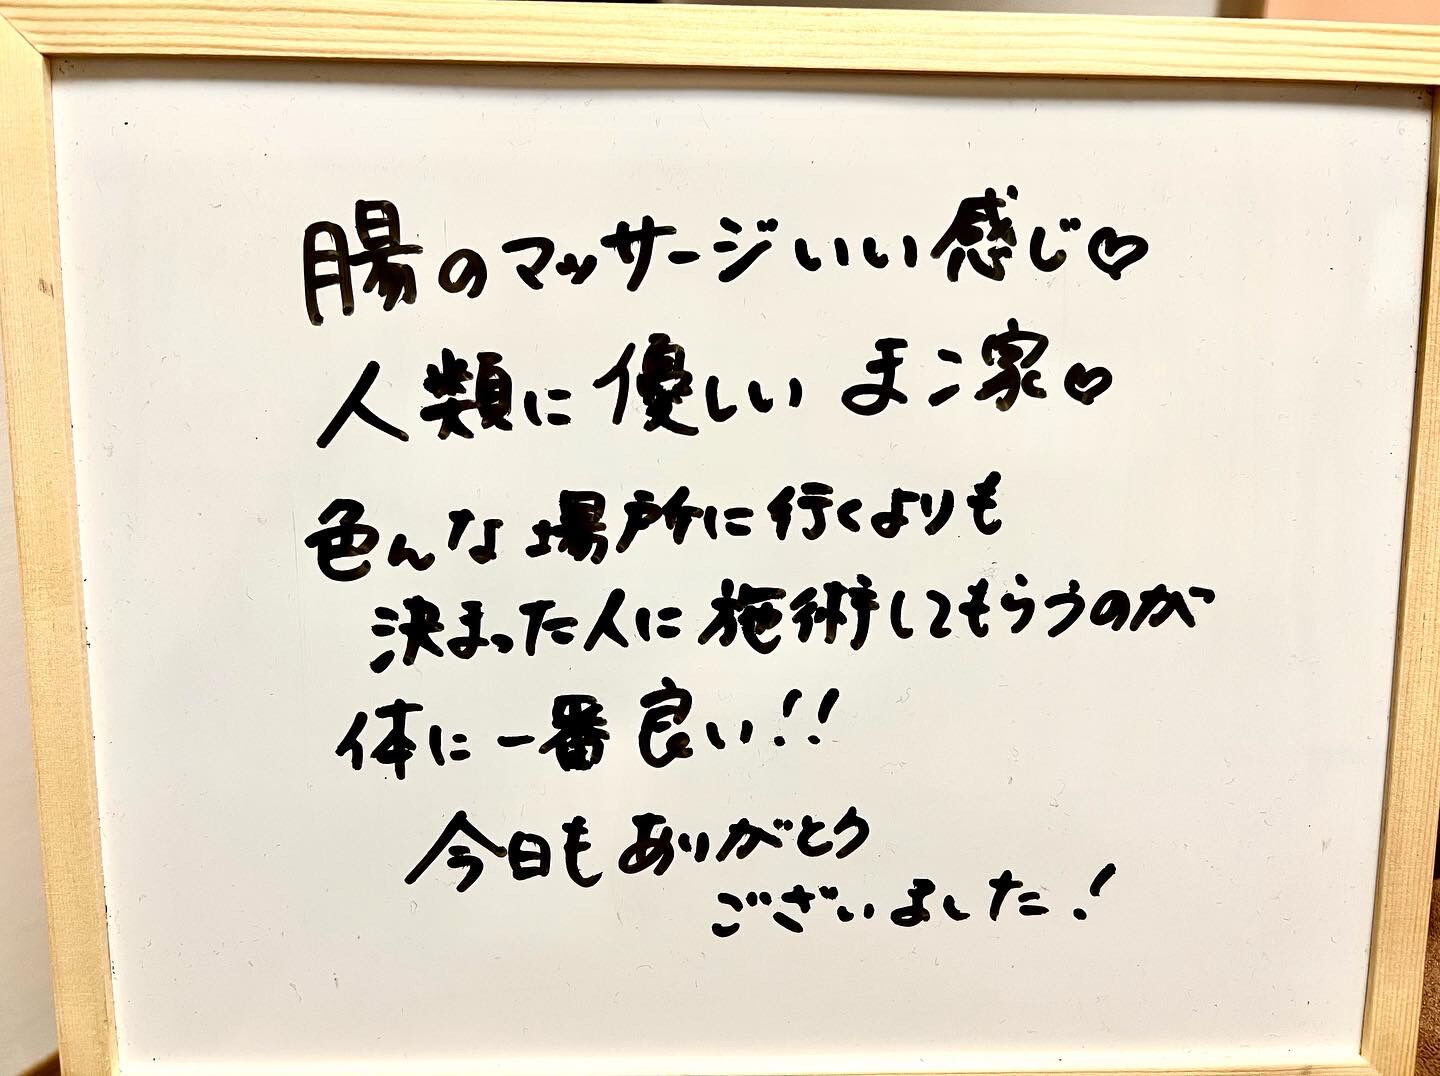 腸のマッサージいい感じ♡
人類に優しいまこ家♡
色んな場所に行くよりも
決まった人に施術してもらうのが
体に一番良い!!
今日もありがとう
ございました!